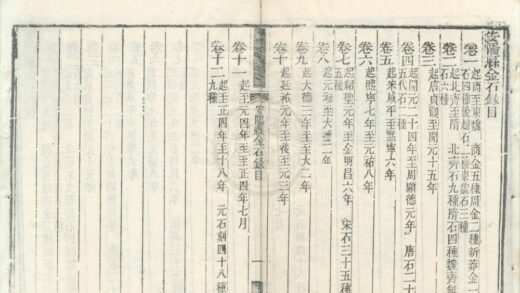 安陽縣金石錄目
卷一 起商至東魏 商金五種周金二種新莽金一
石四種後趙石二種東魏石三種
卷二 起北齊至隋 北齊石九種隋石四種魏齊無
石六種
卷三 起唐貞觀至開元十五年
卷四 起開元二十四年至周顯德元年 唐石二十
五代石二種
卷五 起宋咸平至熙寧六年
卷六 起熙寧七年至元祐八年
卷七 起紹聖元年至金明昌六年 宋石三十五種
卷八 起元初至大德二年
卷九 起大德三年至至大二年
卷十 起延祐元年至後至元三年
卷十一 起至元四年至至正四年七月
卷十二 起至正四年八月至十八年 元石刻四十八種
九種
安陽縣金石錄目
一